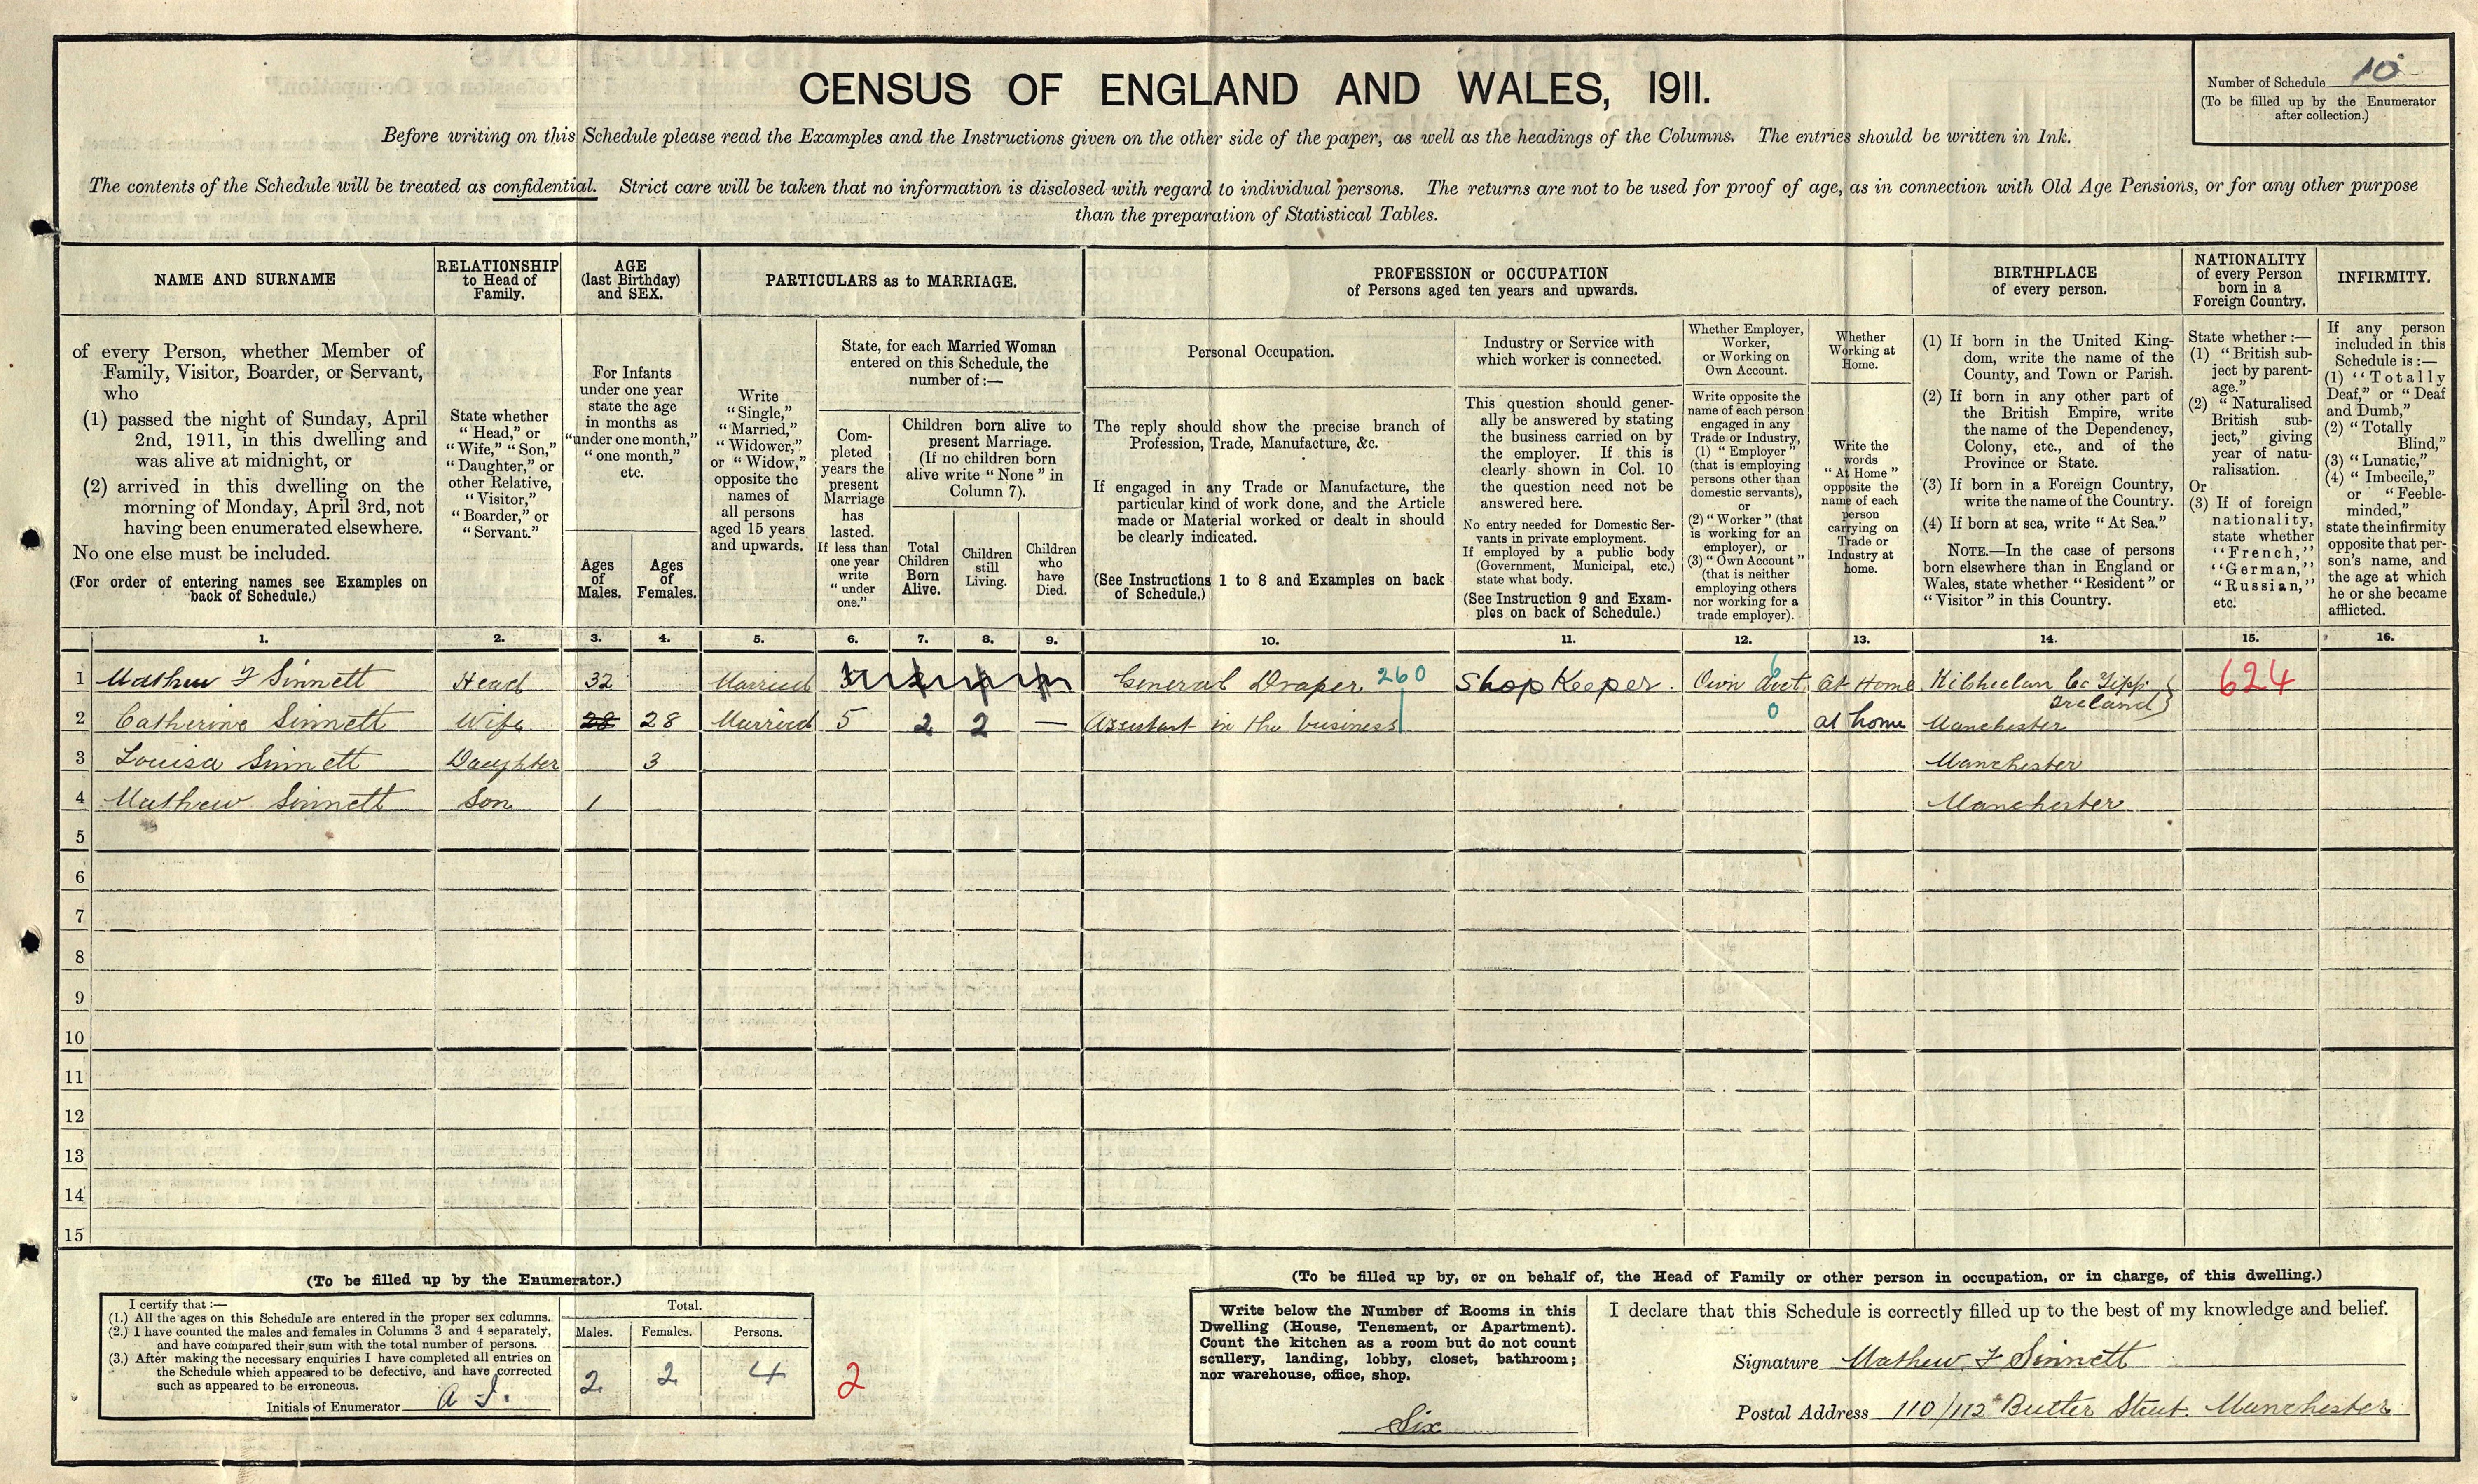 CENSUS OF ENGLAND AND WALES, 1911.
Number of Schedule 10
(To be filled up by the Enumerator
after collection.)
Before writing on this Schedule please read the Examples and the Instructions given on the other side of the paper, as well as the headings of the Columns. The entries should be written in Ink.
The contents of the Schedule will be treated as confidential. Strict care will be taken that no information is disclosed with regard to individual persons. The returns are not to be used for proof of age, as in connection with Old Age Pensions, or for any other purpose
than the preparation of Statistical Tables.
NAME AND SURNAME
of every Person, whether Member of
Family, Visitor, Boarder, or Servant,
who
(1) passed the night of Sunday, April
2nd, 1911, in this dwelling and
was alive at midnight, or
(2) arrived in this dwelling on the
morning of Monday, April 3rd, not
having been enumerated elsewhere.
No one else must be included.
(For order of entering names see Examples on
back of Schedule.)
RELATIONSHIP
to Head of
Family.
State whether
"Head," or
"Wife," "Son,"
"Daughter," or
other Relative,
"Visitor,"
"Boarder," or
"Servant."
AGE
(last Birthday)
and SEX.
For Infants
under one year
state the age
in months as
"under one month,"
"one month,"
etc.
Ages
of
Males.
Ages
of
Females.
PARTICULARS as to MARRIAGE.
Write
"Single,"
"Married,"
"Widower,"
or "Widow,"
opposite the
names of
all persons
aged 15 years
and upwards.
State, for each Married Woman
entered on this Schedule, the
number of:—
Com-
pleted
years the
present
Marriage
has
lasted.
If less than
one year
write
"under
one."
Children born alive to
present Marriage.
(If no children born
alive write "None" in
Column 7).
Total
Children
Born
Alive.
Children
still
Living.
Children
who
have
Died.
PROFESSION or OCCUPATION
of Persons aged ten years and upwards.
Personal Occupation.
The reply should show the precise branch of
Profession, Trade, Manufacture, &c.
If engaged in any Trade or Manufacture, the
particular kind of work done, and the Article
made or Material worked or dealt in should
be clearly indicated.
(See Instructions 1 to 8 and Examples on back
of Schedule.)
Industry or Service with
which worker is connected.
This question should gener-
ally be answered by stating
the business carried on by
the employer. If this is
clearly shown in Col. 10
the question need not be
answered here.
No entry needed for Domestic Ser-
vants in private employment.
If employed by a public body
(Government, Municipal, etc.)
state what body.
(See Instruction 9 and Exam-
ples on back of Schedule.)
Whether Employer,
Worker,
or Working on
Own Account.
Write opposite the
name of each person
engaged in any
Trade or Industry,
(1) "Employer"
(that is employing
persons other than
domestic servants),
or
(2) "Worker" (that
is working for an
employer), or
(3) "Own Account"
(that is neither
employing others
nor working for a
trade employer).
Whether
Working at
Home.
Write the
words
"At Home"
opposite the
name of each
person
carrying on
Trade or
Industry at
home.
BIRTHPLACE
of every person.
(1) If born in the United King-
dom, write the name of the
County, and Town or Parish.
(2) If born in any other part of
the British Empire, write
the name of the Dependency,
Colony, etc., and of the
Province or State.
(3) If born in a Foreign Country,
write the name of the Country.
(4) If born at sea, write "At Sea."
NOTE.—In the case of persons
born elsewhere than in England or
Wales, state whether "Resident" or
"Visitor" in this Country.
NATIONALITY
of every Person
born in a
Foreign Country.
State whether:—
(1) "British sub-
ject by parent-
age."
(2) "Naturalised
British sub-
ject," giving
year of natu-
ralisation.
Or
(3) If of foreign
nationality,
state whether
"French,"
"German,"
"Russian,"
etc.
INFIRMITY.
If any person
included in this
Schedule is:—
(1) "Totally
Deaf," or "Deaf
and Dumb,"
(2) "Totally
Blind,"
(3) "Lunatic,"
(4) "Imbecile,"
or "Feeble-
minded,"
state the infirmity
opposite that per-
son's name, and
the age at which
he or she became
afflicted.
1. 2. 3. 4. 5. 6. 7. 8. 9. 10. 11. 12. 13. 14. 15. 16.
1 Mathew F Sinnett Head 32 Married General Draper 260 Shop Keeper. Own Acct 6 At Home Kilsheelan Co Tipp Ireland 624
2 Catherine Sinnett Wife 28 28 Married 5 2 2 — Assistant in the business 0 at home Manchester
3 Louisa Sinnett Daughter 3 Manchester
4 Mathew Sinnett Son 1 Manchester
5
6
7
8
9
10
11
12
13
14
15
(To be filled up by the Enumerator.)
I certify that:—
(1.) All the ages on this Schedule are entered in the proper sex columns.
(2.) I have counted the males and females in Columns 3 and 4 separately,
and have compared their sum with the total number of persons.
(3.) After making the necessary enquiries I have completed all entries on
the Schedule which appeared to be defective, and have corrected
such as appeared to be erroneous.
Initials of Enumerator
Total.
Males. Females. Persons.
2 2 4
2
(To be filled up by, or on behalf of, the Head of Family or other person in occupation, or in charge, of this dwelling.)
Write below the Number of Rooms in this
Dwelling (House, Tenement, or Apartment).
Count the kitchen as a room but do not count
scullery, landing, lobby, closet, bathroom;
nor warehouse, office, shop.
Six
I declare that this Schedule is correctly filled up to the best of my knowledge and belief.
Signature Mathew F Sinnett
Postal Address 110/112 Butler Street. Manchester